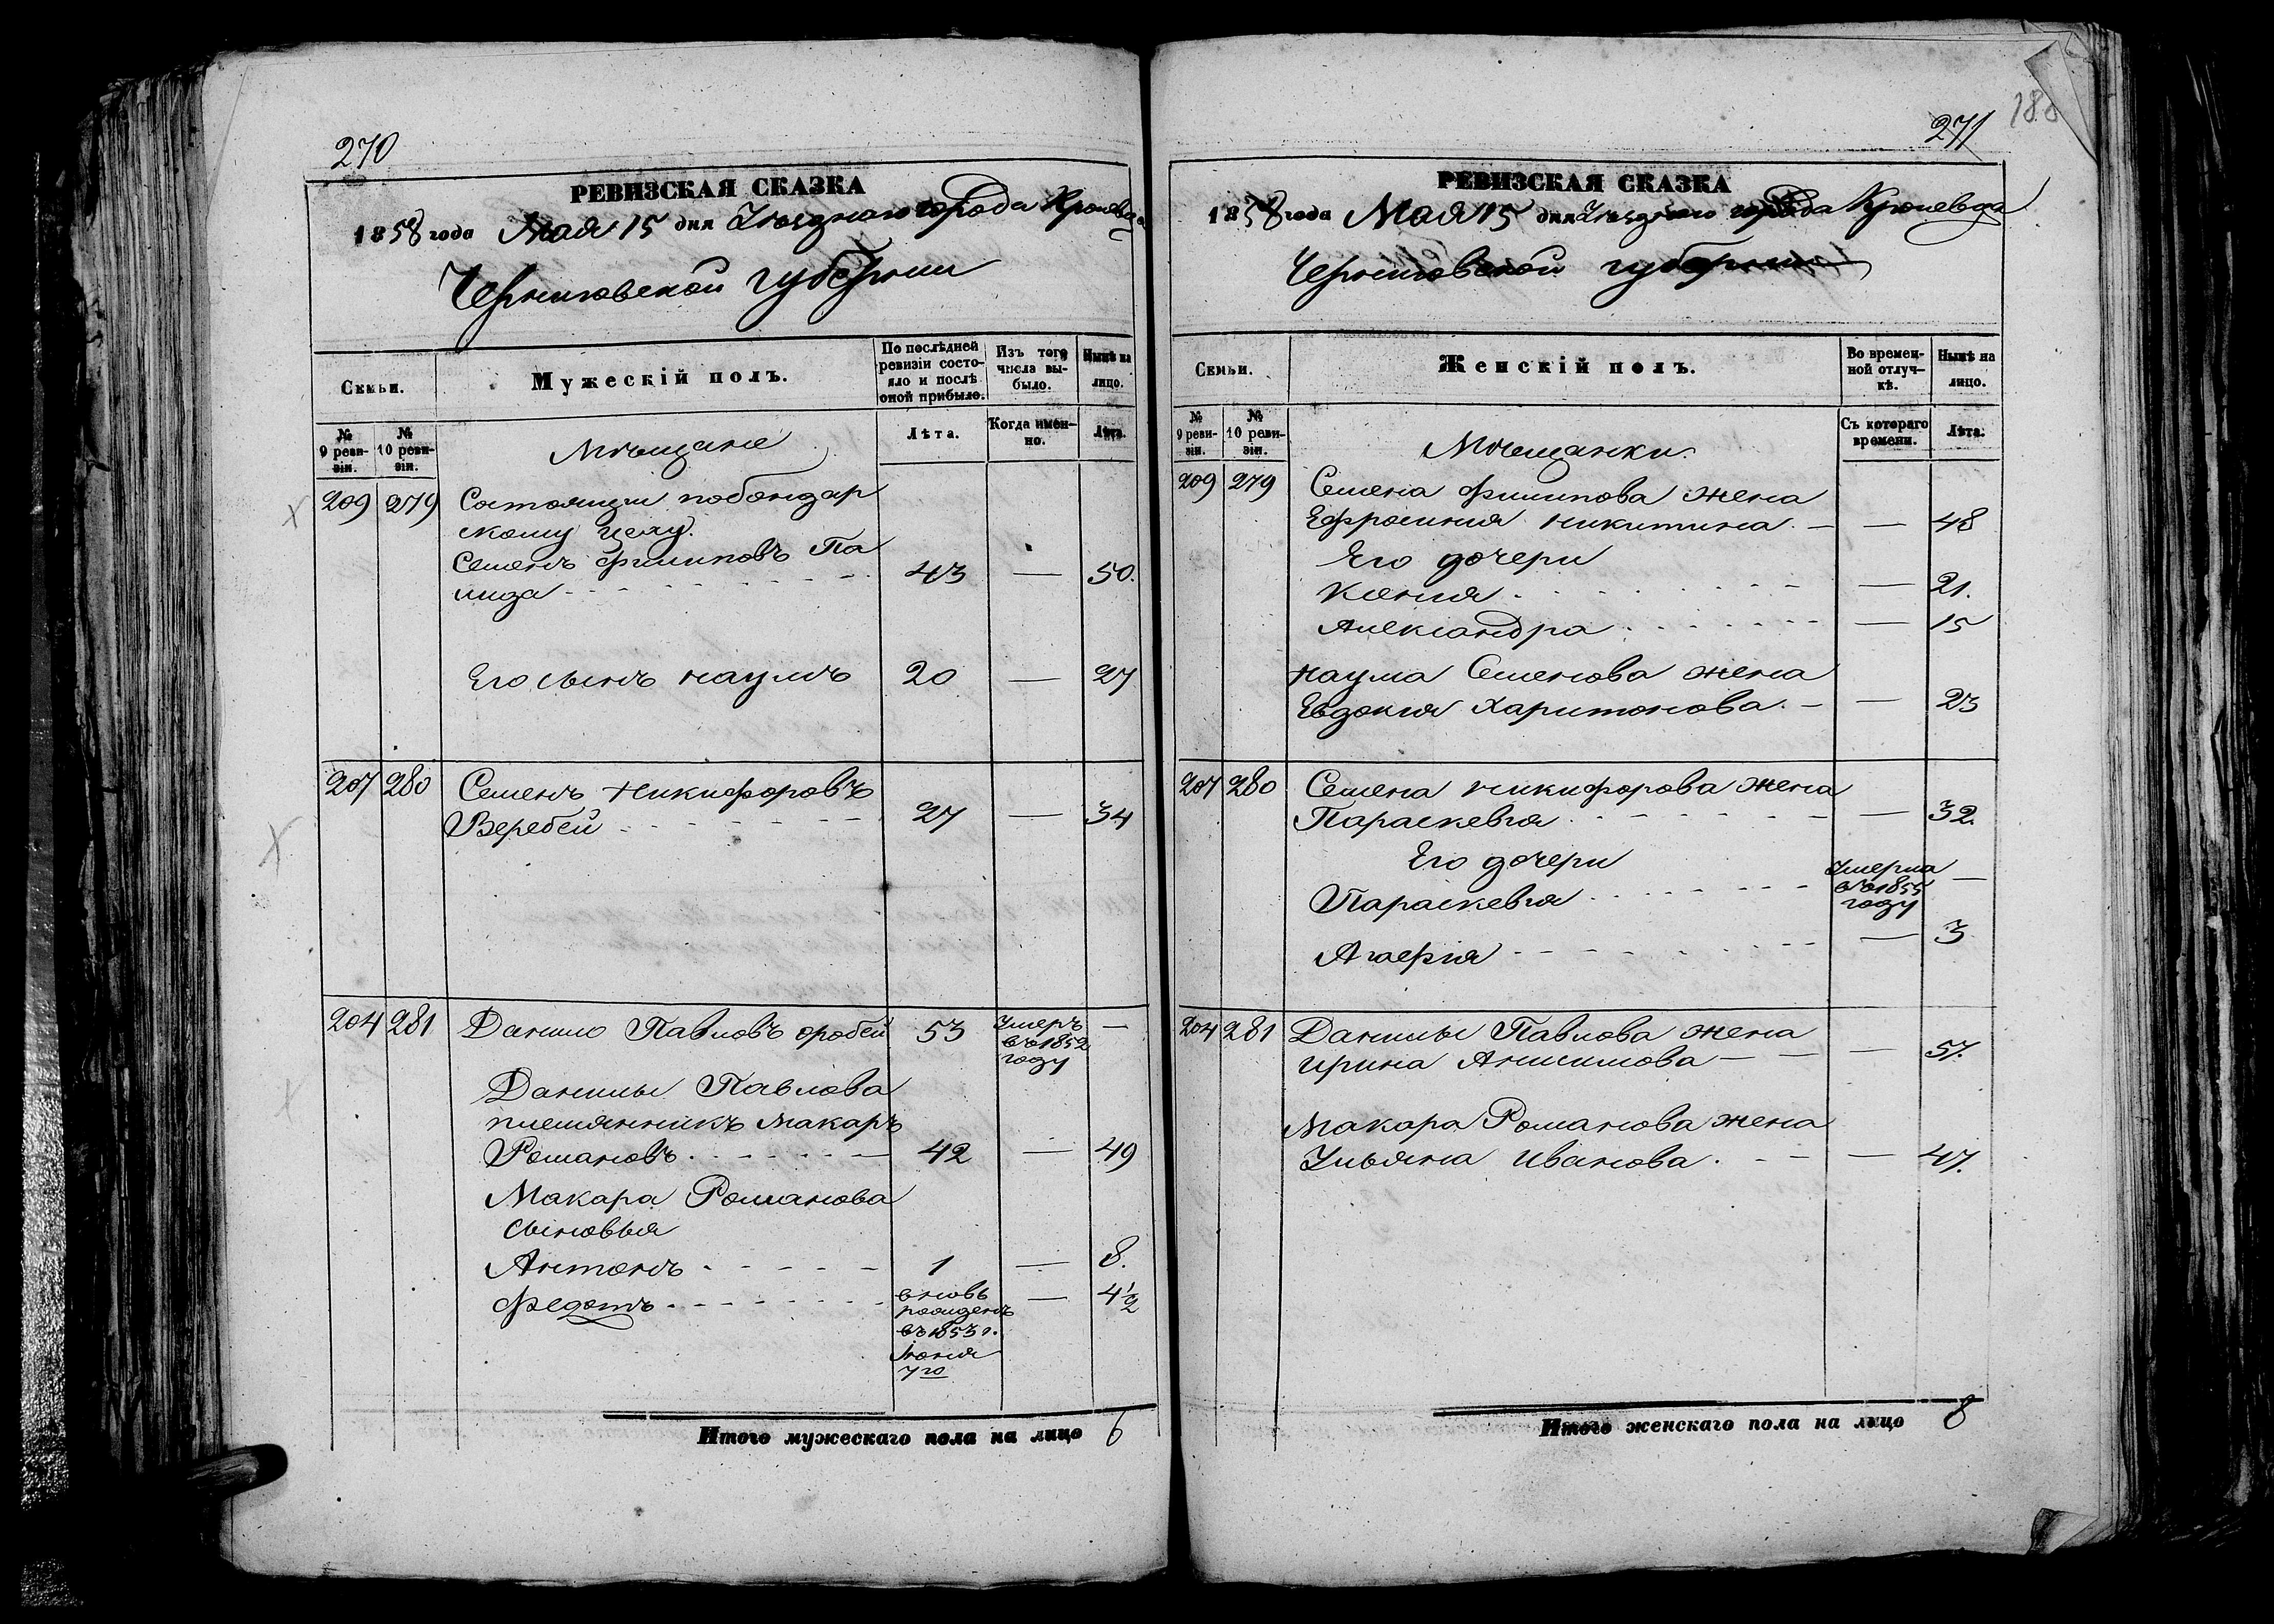 270
РЕВИЗСКАЯ СКАЗКА
1858 года Мая 15 дня Уѣзднаго города Кролевца
Черниговской губерніи
Семьи.
Мужескій полъ.
По послѣдней ревизіи состояло и послѣ оной прибыло.
Изъ того числа выбыло.
Нынѣ на лицо.
№ 9 ревизіи.
№ 10 ревизіи.
Мѣщане
Лѣта.
Когда именно.
Лѣта.
209 279 Состоящіи побондар
скому цеху.
Семенъ Филиповъ Па
лида 43 — 50.
Его сынъ Наумъ 20 — 27
207 280 Семенъ Никифоровъ
Веребей 27 — 34
204 281 Данило Павловъ оробей 53 Умеръ въ 1852 году —
Данилы Павлова
племянникъ Макаръ
Романовъ 42 — 49
Макара Романова
сыновья
Антонъ 1 — 8.
Федотъ вновь рожденъ въ 1853 г. Іюня 7го — 4½
Итого мужескаго пола на лицо 6
271
188
РЕВИЗСКАЯ СКАЗКА
1858 года Мая 15 дня Уѣзднаго города Кролевца
Черниговской губерніи
Семьи.
Женскій полъ.
Во временной отлучкѣ.
Нынѣ на лицо.
№ 9 ревизіи.
№ 10 ревизіи.
Мѣщанки
Съ котораго времени.
Лѣта.
209 279 Семена Филипова жена
Ефросинія Никитина — 48
Его дочери
Ксенія — 21.
Александра — 15
Наума Семенова жена
Евдокія Харитонова — 23
207 280 Семена Никифорова жена
Параскевія — 32.
Его дочери
Параскевія Умерла въ 1855 году —
Агаерія — 3
204 281 Данилы Павлова жена
Ирина Анисимова — 57.
Макара Романова жена
Ульяна Иванова — 47.
Итого женскаго пола на лицо 8